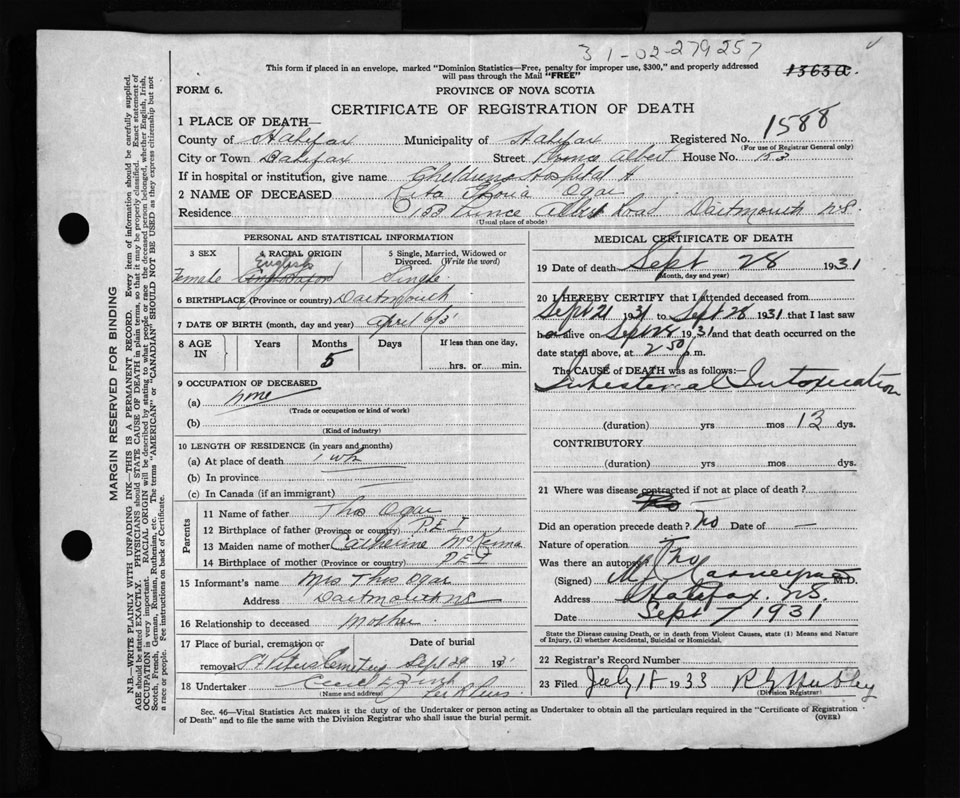 31-02-279257
This form if placed in an envelope, marked "Dominion Statistics—Free, penalty for improper use, $300," and properly addressed
will pass through the Mail "FREE"
1363a
FORM 6.
PROVINCE OF NOVA SCOTIA
CERTIFICATE OF REGISTRATION OF DEATH
1 PLACE OF DEATH—
County of Halifax Municipality of Halifax Registered No. 1588
(For use of Registrar General only)
City or Town Halifax Street Prince Albert House No. 153
If in hospital or institution, give name Childrens Hospital H
2 NAME OF DECEASED Rita Ogar
Residence 133 Prince Albert Road Dartmouth NS.
(Usual place of abode)
PERSONAL AND STATISTICAL INFORMATION
3 SEX 4 RACIAL ORIGIN 5 Single, Married, Widowed or Divorced. (Write the word)
Female English Single
6 BIRTHPLACE (Province or country) Dartmouth
7 DATE OF BIRTH (month, day and year) April 6/31
8 AGE IN Years Months Days If less than one day,
5
hrs. or min.
9 OCCUPATION OF DECEASED
(a) none
(Trade or occupation or kind of work)
(b)
(Kind of industry)
10 LENGTH OF RESIDENCE (in years and months)
(a) At place of death 1 wk
(b) In province
(c) In Canada (if an immigrant)
Parents
11 Name of father Thos Ogar
12 Birthplace of father (Province or country) P.E.I
13 Maiden name of mother Catherine
14 Birthplace of mother (Province or country) P.E.I
15 Informant's name Mrs Thos Ogar
Address Dartmouth NS
16 Relationship to deceased Mother
17 Place of burial, cremation or removal Date of burial
St Peters Cemetery Sept 29 193
18 Undertaker
(Name and address)
MEDICAL CERTIFICATE OF DEATH
19 Date of death Sept 28 1931
(Month, day and year)
20 I HEREBY CERTIFY that I attended deceased from
Sept 21 1931 to Sept 28 1931 that I last saw
h alive on Sept 28 1931 and that death occurred on the
date stated above, at 2.50 m.
The CAUSE of DEATH was as follows:
Intestinal Intoxication
(duration) yrs mos 13 dys.
CONTRIBUTORY
(duration) yrs. mos. dys.
21 Where was disease contracted if not at place of death?
Did an operation precede death? No Date of —
Nature of operation
Was there an autopsy? No
(Signed) M.D.
Address Halifax. N.S.
Date Sept 1931
State the Disease causing Death, or in death from Violent Causes, state (1) Means and Nature
of Injury, (2) whether Accidental, Suicidal or Homicidal.
22 Registrar's Record Number
23 Filed July 18 1933
(Division Registrar)
Sec. 46—Vital Statistics Act makes it the duty of the Undertaker or person acting as Undertaker to obtain all the particulars required in the "Certificate of Registration
of Death" and to file the same with the Division Registrar who shall issue the burial permit.
(OVER)
MARGIN RESERVED FOR BINDING
N.B.—WRITE PLAINLY WITH UNFADING INK—THIS IS A PERMANENT RECORD. Every item of information should be carefully supplied.
AGE should be stated EXACTLY. PHYSICIANS should STATE CAUSE OF DEATH in plain terms, so that it may be properly classified. Exact statement of
OCCUPATION is very important. RACIAL ORIGIN will be described by stating to what people or race the deceased person belonged, whether English, Irish,
Scotch, French, German, Russian, Ruthenian, etc. The terms "AMERICAN" or "CANADIAN" SHOULD NOT BE USED as they express citizenship but not
a race or people. Fee instructions on back of Certificate.